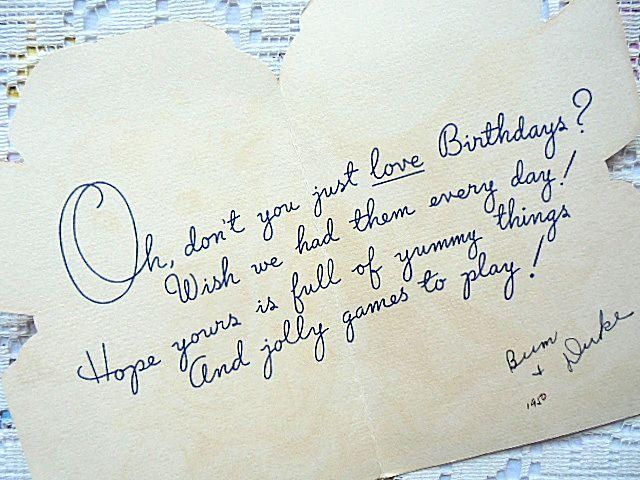 Oh, don't you just love Birthdays?
Wish we had them every day!
Hope yours is full of yummy things
And jolly games to play!
Bum
+ Duke
1950